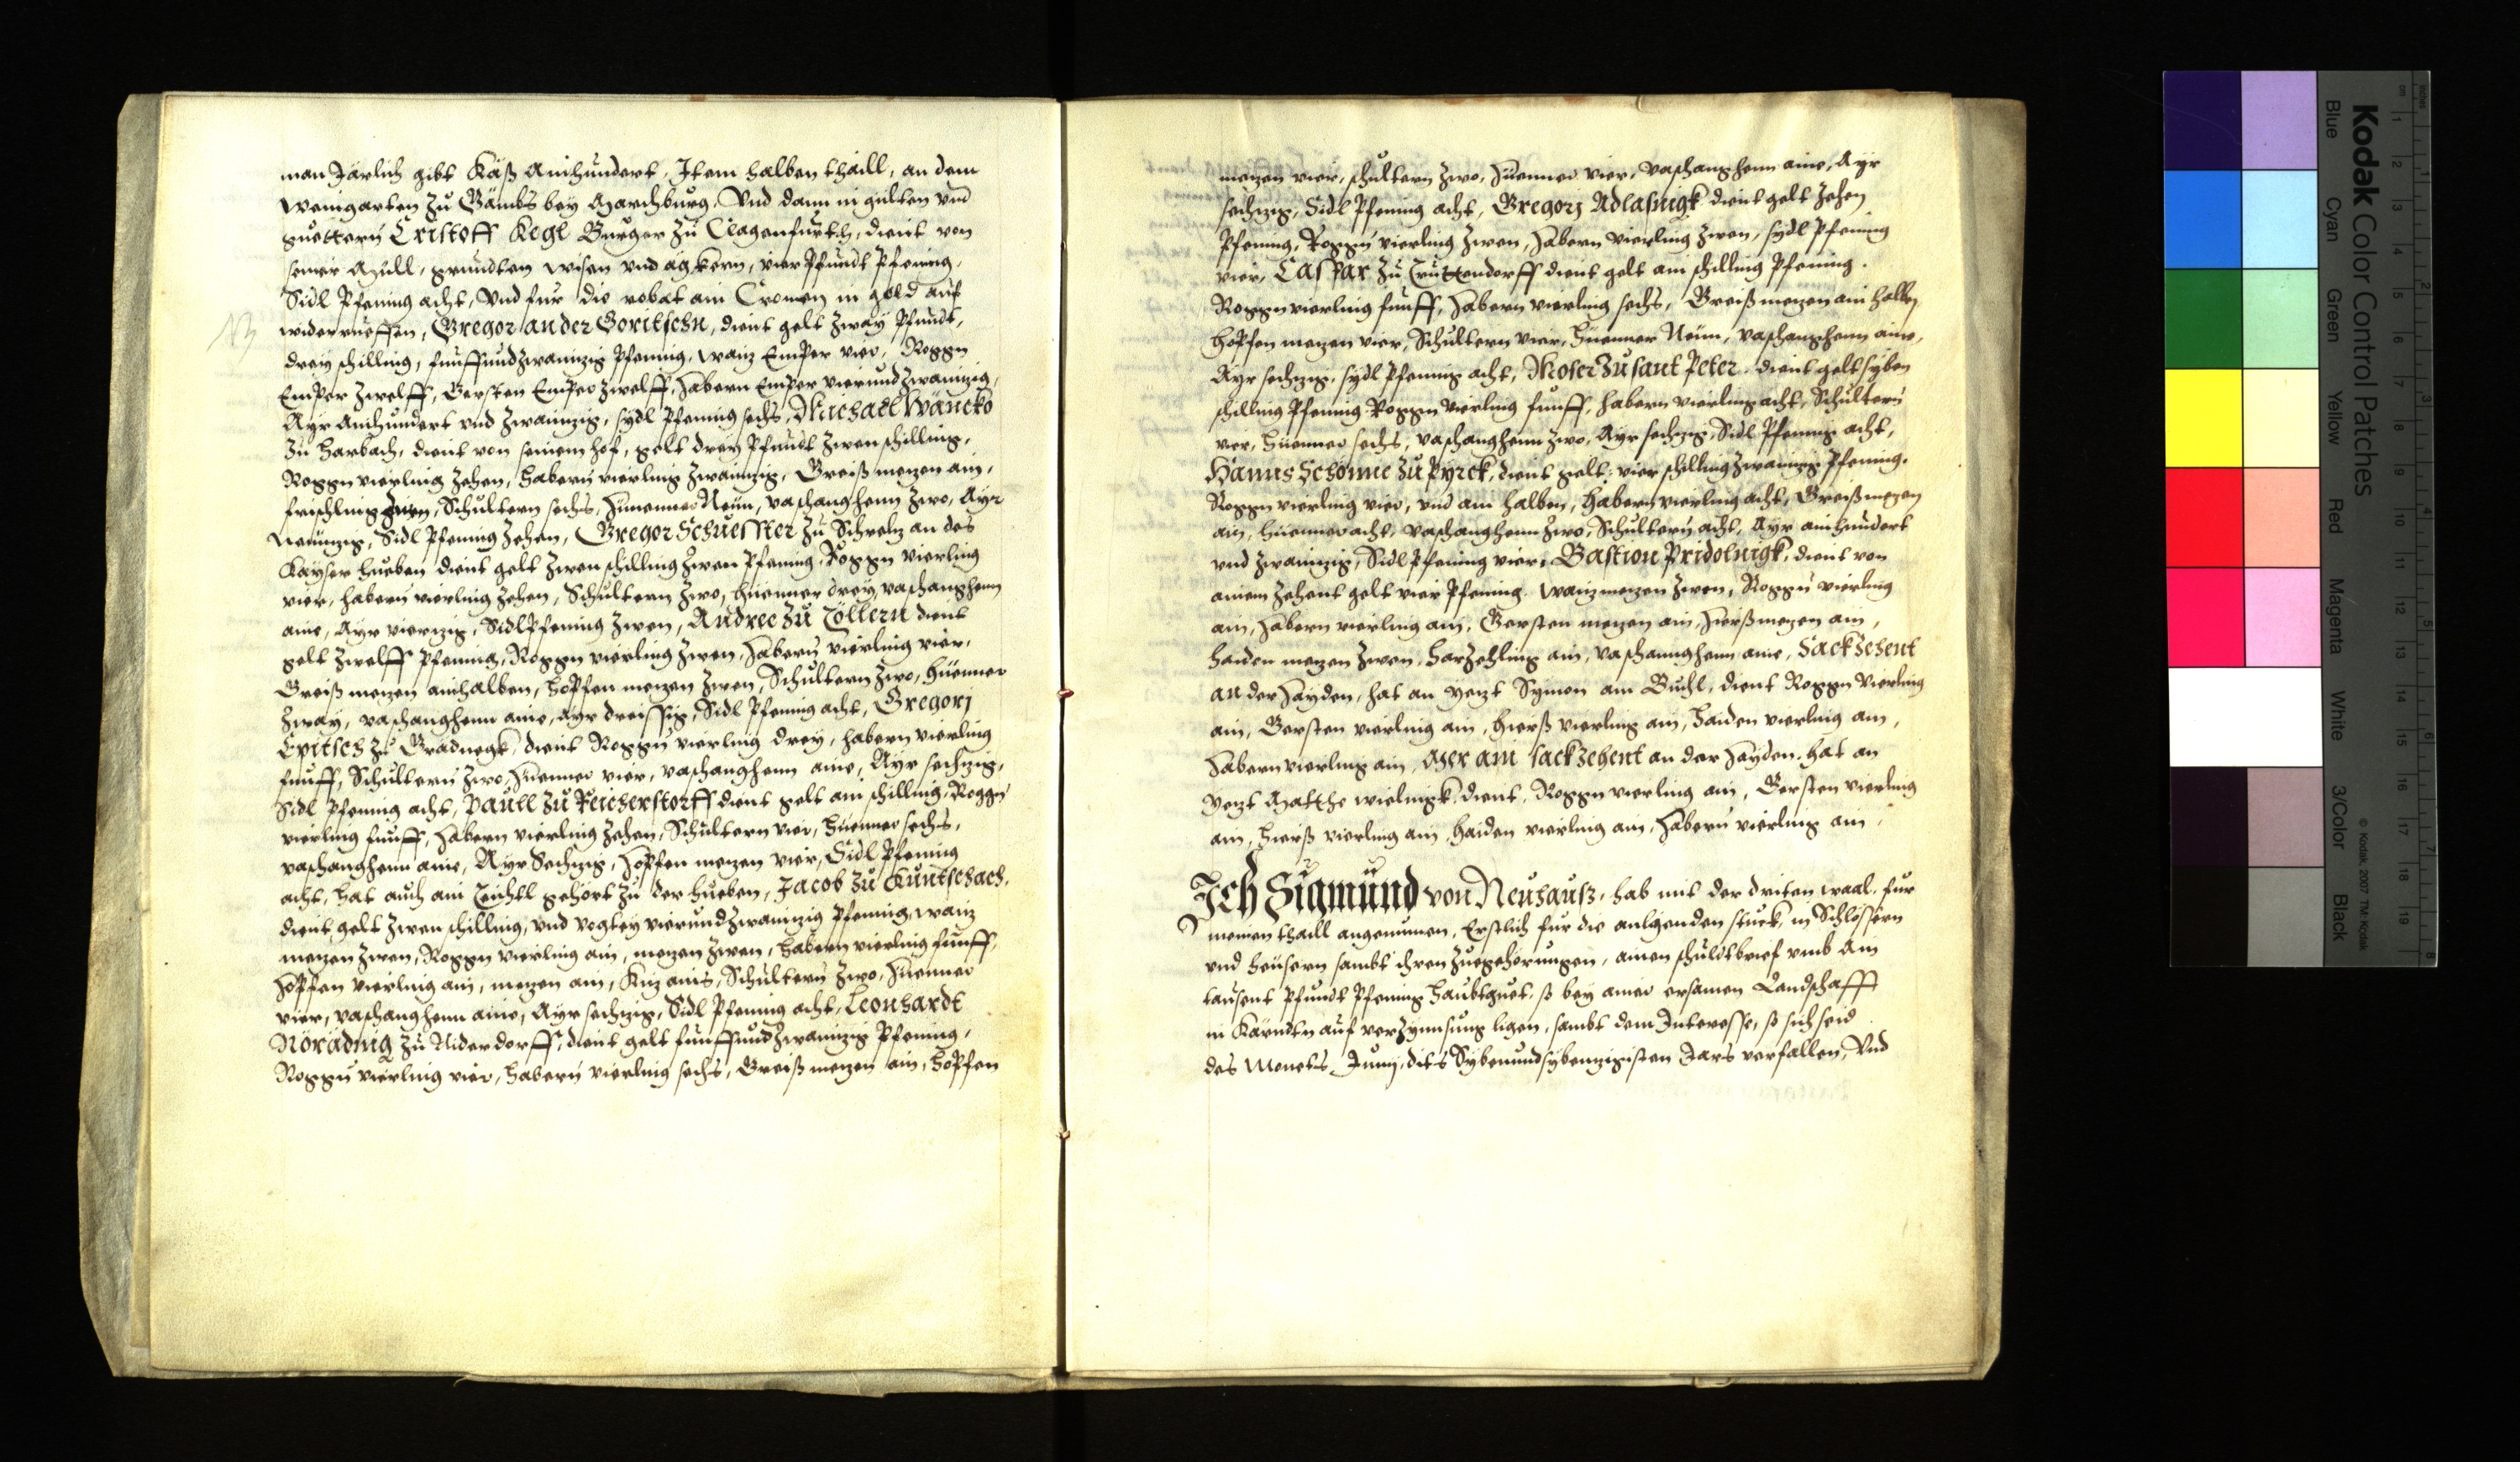 man Järlich gibt Käß Ainhundert, Item halben thaill, an dem
Weingarten zu Gämbs bey Marchburg, Vnd dann in gülten vnd
guettern Cristoff Kegl Burger zu Clagenfurth, dient von
seiner Müll, grundten wisen vnd agkern, vier Pfundt Pfening,
Sidl Pfening acht, Vnd fur die robat ain Cronen in gold auf
widerrueffen, Gregor an der Goritschn, dient gelt zway Pfundt,
drey schilling, funffundzwainzig Pfening, waiz Emper vier, Roggn
Emper zwelff, Gersten Emper zwelff, Habern Emper vierundzwainzig,
Ayr Ainhundert vnd zwainzig, sydl Pfening sechs, Michael Wäncko
zu Harbach, dient von seinem hof, gelt drey Pfundt zwen schilling,
Roggn vierling zehen, Habern vierling zwainzig, Greiß mezen ain,
frischling zwen, Schultern sechs, Hüenner Neün, vaschanghenn zwo, Ayr
Neunzig, Sidl Pfening zehen, Gregor Schuesster zu Schrelz an des
Kayser hueben dient gelt zwen schilling zwen Pfening, Roggn vierling
vier, habern vierling zehen, Schultern zwo, hüenner drey, vaschanghenn
aine, Ayr vierzig, Sidl Pfening zwen, Andree zu Zöllern dient
gelt zwelff Pfening, Roggn vierling zwen, Habern vierling vier,
Greiß mezen ainhalben, Hopfen mezen zwen, Schultern zwo, hüenner
zway, vaschanghenn aine, Ayr dreissig, Sidl Pfening acht, Gregorj
Epitsch zu Gradnegk, dient Roggn vierling drey, habern vierling
funff, Schultern zwo, Hüenner vier, vaschanghenn aine, Ayr sechzig,
Sidl Pfening acht, Paull zu Reicherstorff dient gelt ain schilling, Roggn
vierling funff, Habern vierling zehen, Schultern vier, Hüenner sechs,
vaschanghenn aine, Ayr Sechzig, Hopfen mezen vier, Sidl Pfening
acht, hat auch ain Teichtl gehört zu der hueben, Jacob zu Kuntschach,
dient gelt zwen schilling, vnd vogtey vierundzwainzig Pfening, waiz
mezen zwen, Roggn vierling ain, mezen zwen, Habern vierling funff,
Hopfen vierling ain, mezen ain, Kiz ains, Schultern zwo, Hüenner
vier, vaschanghenn aine, Ayr sechzig, Sidl Pfening acht, Leonhardt
Noradnig zu Niderdorff, dient gelt funffundzwainzig Pfening,
Roggn vierling vier, habern vierling sechs, Greiß mezen ain, Hopfen
mezen vier, schultern zwo, Hüenner vier, vaschanghenn aine, Ayr
sechzig, Sidl Pfening acht, Gregorj Adlasnigk dient gelt zehen
Pfening, Roggn vierling zwen, Habern vierling zwen, sydl Pfening
vier, Caspar zu Truttendorff dient gelt ain schilling Pfening.
Roggn vierling funff, Habern vierling sechs, Greiß mezen ain halben
hopfen mezen vier, Schultern vier, Hüenner Neün, vaschanghenn aine,
Ayr sechzig, sydl Pfennig acht, Moser zu sant Peter dient gelt syben
schilling Pfening Roggn vierling funff, habern vierling acht, Schultern
vier, Hüenner sechs, vaschanghenn zwo, Ayr sechzig, Sidl Pfening acht,
Hanns Schonne zu Pyrck, dient gelt, vier schilling zwainzig Pfening.
Roggn vierling vier, vnd ain halben, Habern vierling acht, Greiß mezen
ain, hüenner acht, vaschanghenn zwo, Schultern acht, Ayr ainhundert
vnd zwainzig, Sidl Pfening vier, Bastion Pridolnigk, dient von
ainem zehent gelt vier Pfening, Waiz mezen zwen, Roggn vierling
ain, Habern vierling ain, Gersten mezen ain, Hirß mezen ain,
haiden mezen zwen, harzehling ain, vaschannghenn aine, Sackzehent
an der Hayden, hat an yezt Symon am Buchl, dient Roggn vierling
ain, Gersten vierling ain, hierß vierling ain, haiden vierling ain,
Habern vierling ain, Mer ain sackzehent an der Hayden, hat an
yezt Matthe wielnigk, dient, Roggn vierling ain, Gersten vierling
ain, Hierß vierling ain, haiden vierling ain, Habern vierling ain,
Ich Sigmund von Neuhauß, hab mit der driten waal, fur
meinen thaill angenumen, Erstlich fur die anligenden stuck, in Schlössern
vnd heüsern sambt ihren zuegehorungen, ainen schuldtbrief vmb Ain
tausent Pfundt Pfening Haubtguet, so bey ainer ersamen Landschafft
in Kärndtn auf verzynnsung ligen, sambt dem Interesse, so sich seid
des Monets Junij, dits Sybenundsybenzigisten Jars verfallen, Vnd